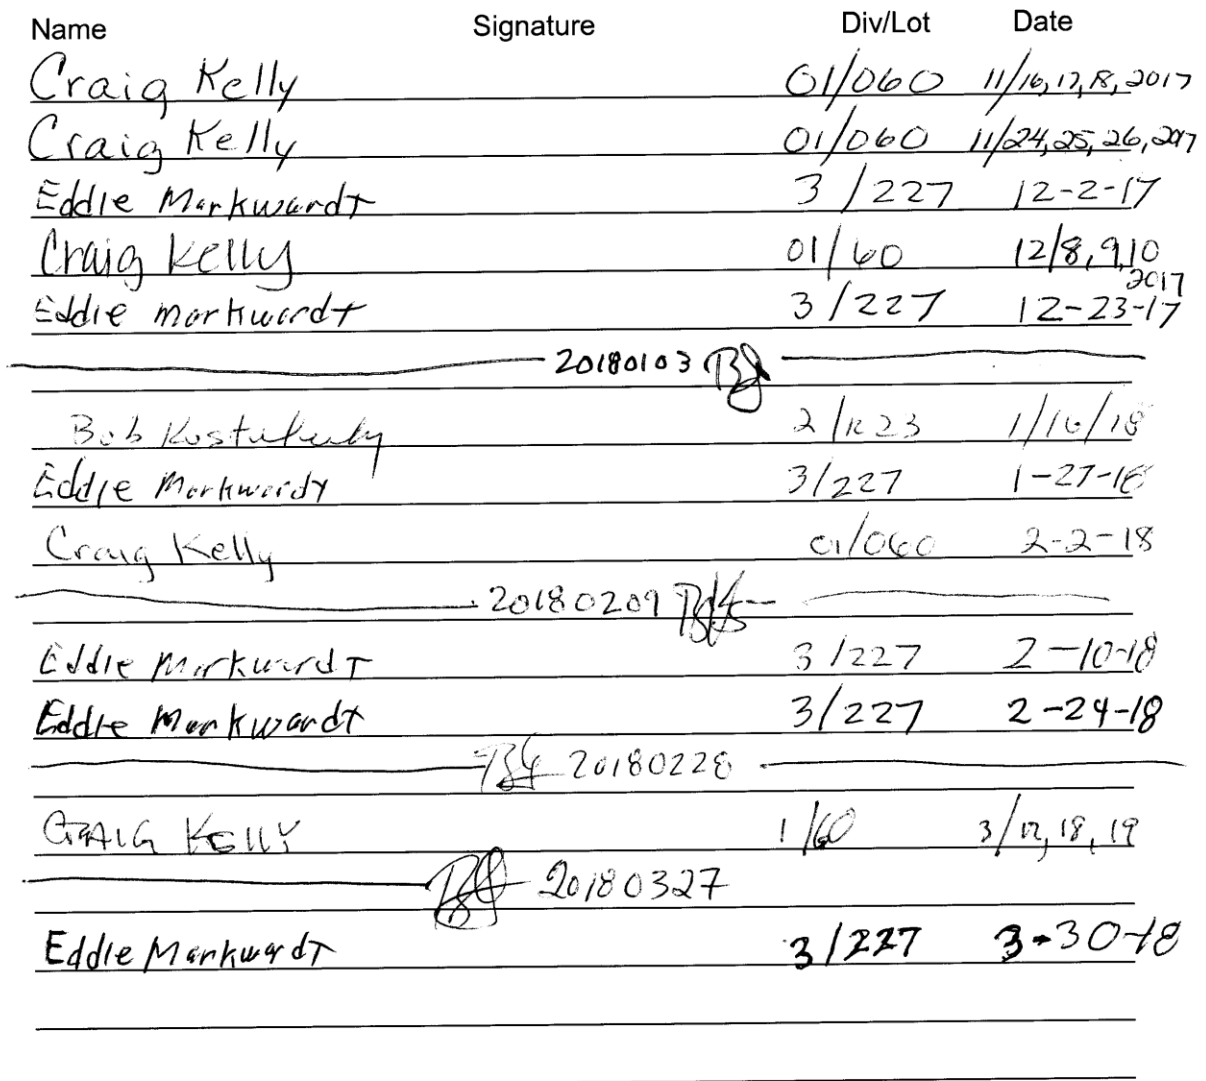 Name Signature Div/Lot Date
Craig Kelly 01/060 11/16,17,18, 2017
Craig Kelly 01/060 11/24,25,26,2017
Eddie Markwardt 3/227 12-2-17
Craig Kelly 01/60 12/8,9,10 2017
Eddie Markwardt 3/227 12-23-17
20180103
Bob 2/ 1/16/18
Eddie Markwardt 3/227 1-27-18
Craig Kelly 01/060 2-2-18
20180209
Eddie Markwardt 3/227 2-10-18
Eddie Markwardt 3/227 2-24-18
20180228
CRAIG KELLY 1/60 3/17,18,19
20180327
Eddie Markwardt 3/227 3-30-18